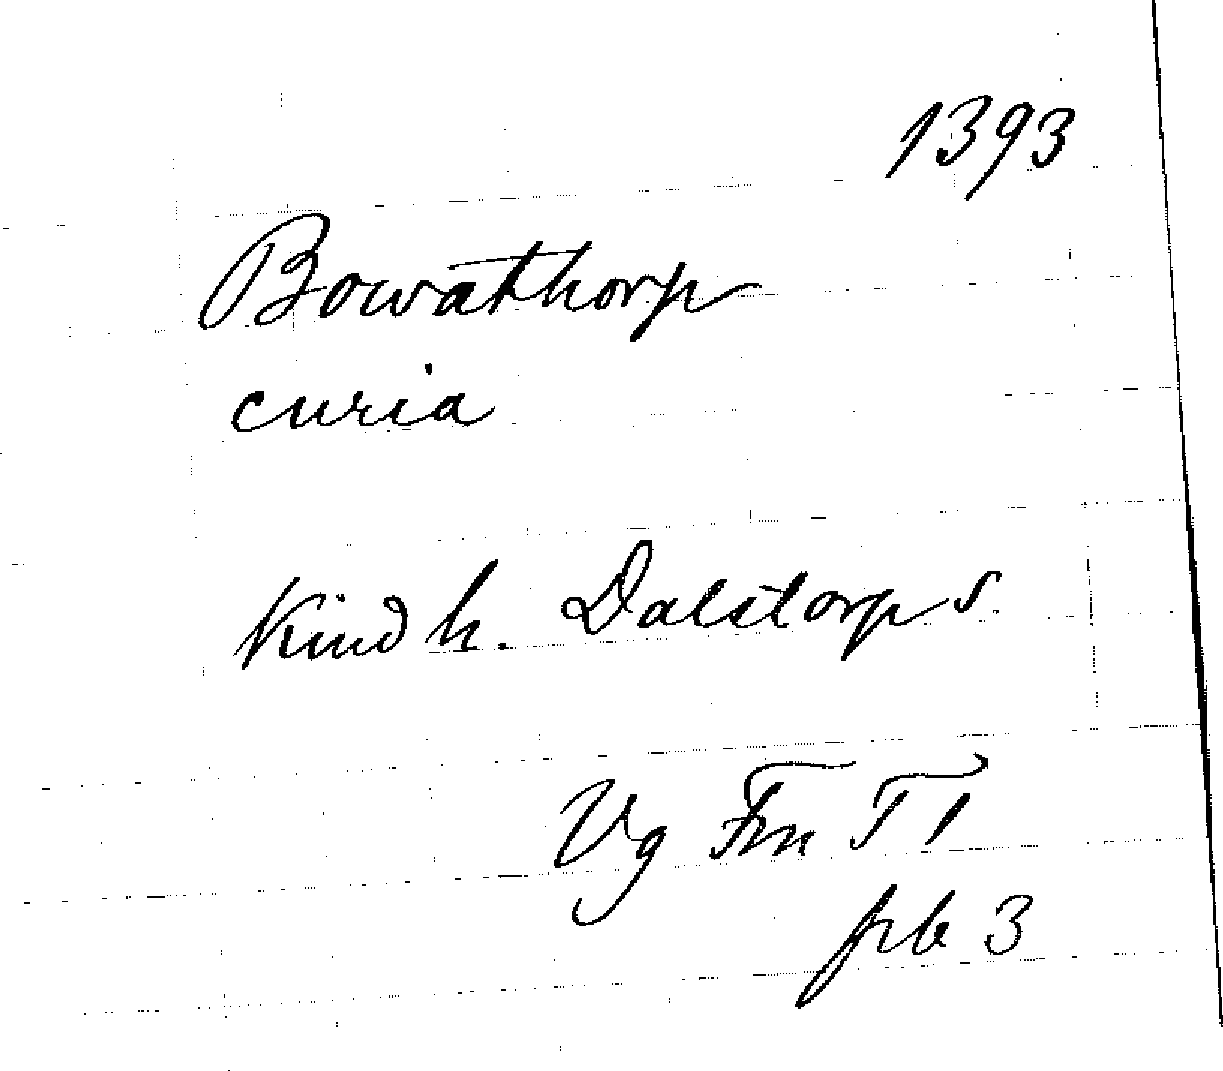 1393
Bowathorp
curia
Kind h. Dalstorp s.
Vg Fm T 1
pb 3